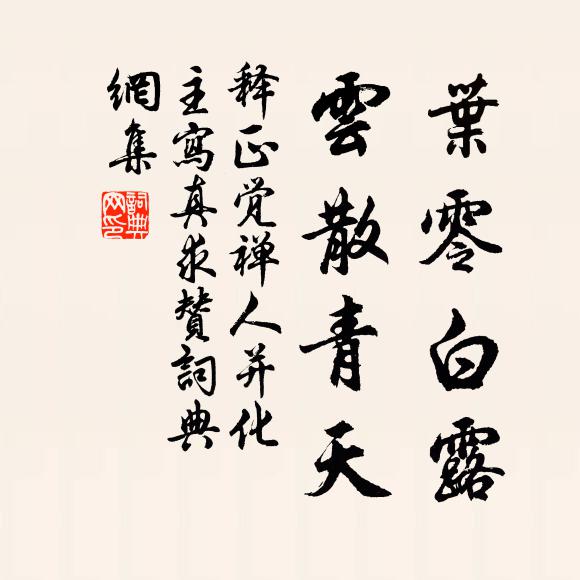 葉零白露
雲散青天
释正觉禅人并化
主寫真求贊詞典
網集
詞典
网印